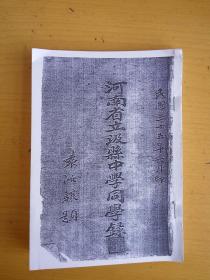 民國三十五年六月印
河南省立汲縣中學同學錄